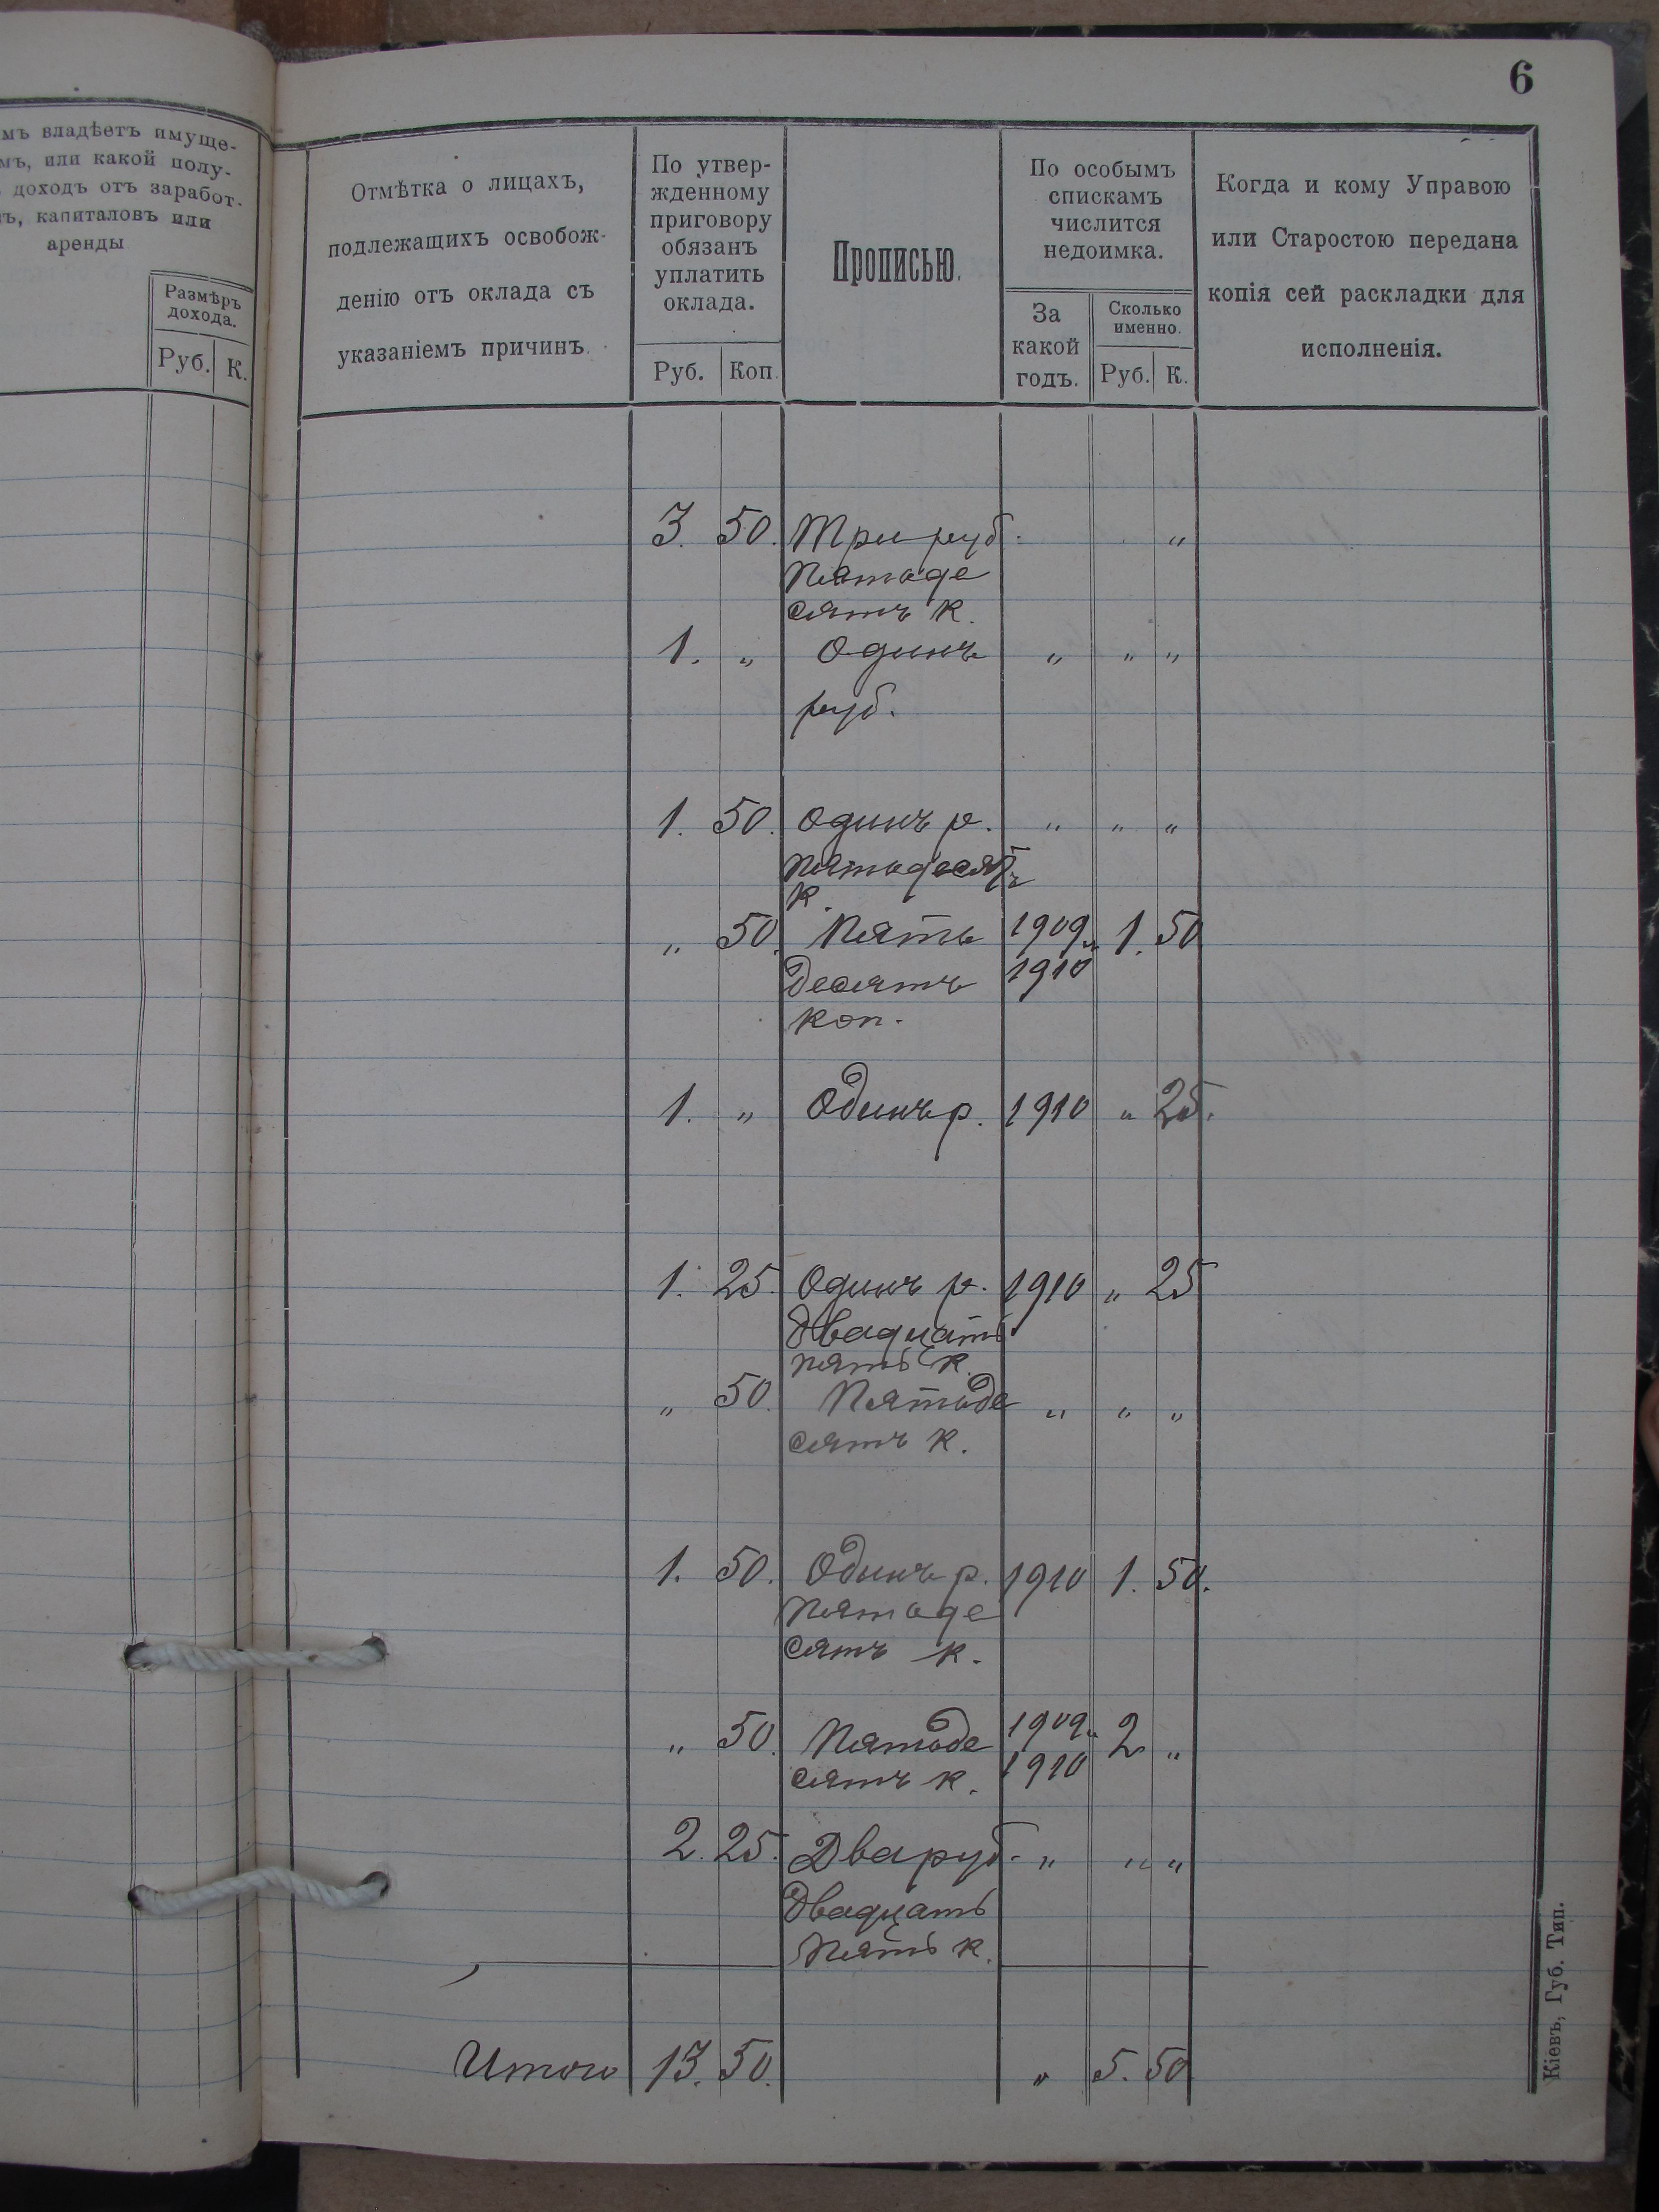 6
мъ владѣетъ имуще-
мъ, или какой полу-
доходъ отъ заработ-
ъ, капиталовъ или
аренды
Размѣръ
дохода.
Руб. К.
Отмѣтка о лицахъ,
подлежащихъ освобож-
денію отъ оклада съ
указаніемъ причинъ.
По утвер-
жденному
приговору
обязанъ
уплатить
оклада.
Руб. Коп.
Прописью.
По особымъ
спискамъ
числится
недоимка.
За
какой
годъ.
Сколько
именно.
Руб. К.
Когда и кому Управою
или Старостою передана
копія сей раскладки для
исполненія.
3. 50. Три руб. „
Пятьде
сятъ к.
1. „ Одинъ „ „ „
руб.
1. 50. Одинъ р. „ „ „
пятьдесятъ
к.
„ 50. Пять 1909 и 1. 50
десятъ 1910
коп.
1. „ Одинъ р. 1910 „ 25.
1. 25. Одинъ р. 1910 „ 25
двадцать
пять к.
„ 50. Пятьде „ „ „
сятъ к.
1. 50. Одинъ р. 1910 1. 50.
Пятьде
сятъ к.
„ 50. Пятьде 1909 и 2 „
сятъ к. 1910
2. 25. Два руб. „ „ „
двадцать
пять к.
Итого 13. 50. „ 5. 50
Кіевъ, Губ. Тип.